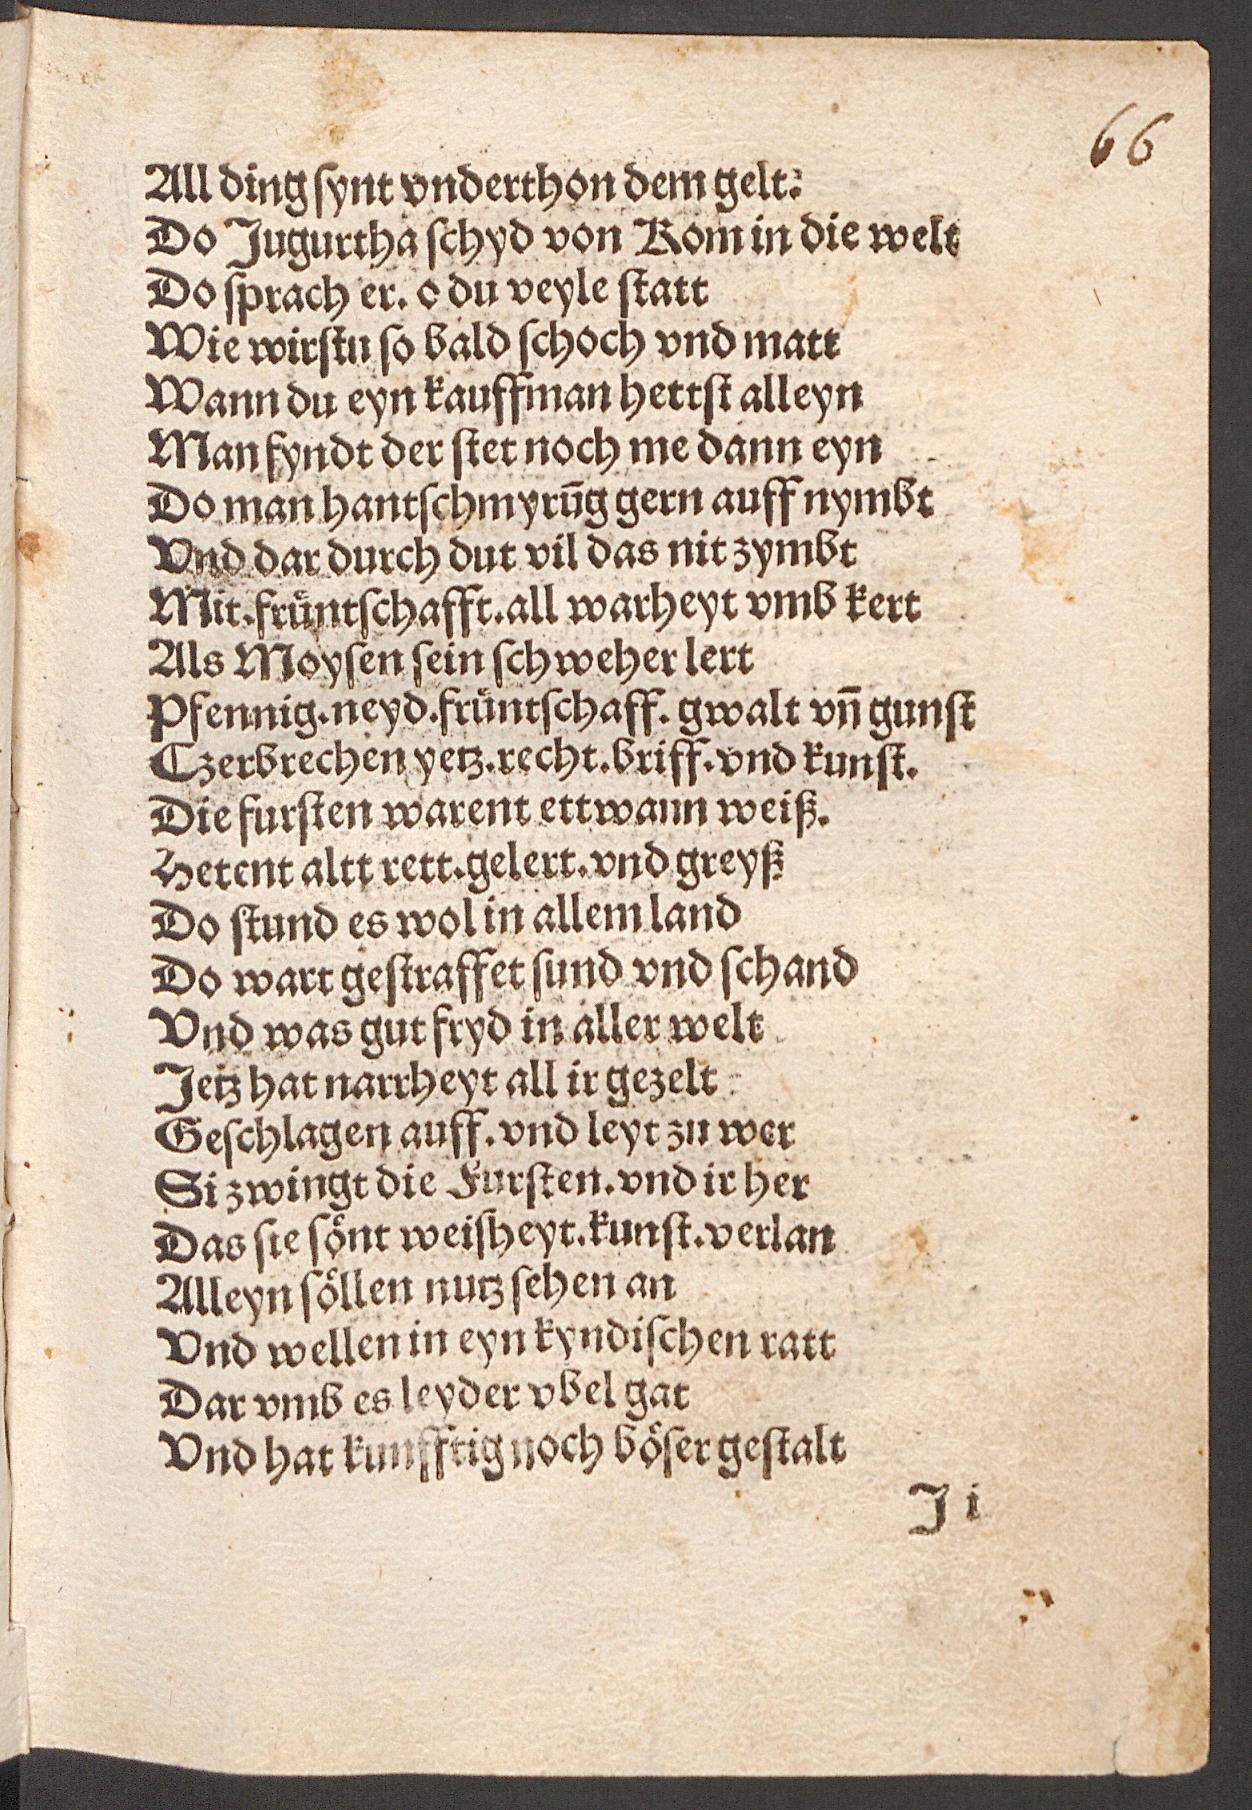 66
All ding synt vnderthon dem gelt:
Do Jugurtha schyd von Rom in die welt
Do sprach er. o du veyle statt
Wie wirstu so bald schoch vnd matt
Wann du eyn kauffman hettst alleyn
Man fyndt der stet noch me dann eyn
Do man hantschmyrūg gern auff nymbt
Vnd dar durch dut vil das nit zymbt
Mit. früntschafft. all warheyt vmb kert
Als Moysen sein schweher lert
Pfennig. neyd. früntschaff. gwalt vn̄ gunst
Czerbrechen yetz. recht. briff. vnd kunst.
Die fursten warent ettwann weiß.
Hetent altt rett. gelert. vnd greyß
Do stund es wol in allem land
Do wart gestraffet sund vnd schand
Vnd was gut fryd in aller welt
Jetz hat narrheyt all ir gezelt
Geschlagen auff. vnd leyt zu wer
Si zwingt die Fursten. vnd ir her
Das sie sönt weisheyt. kunst. verlan
Alleyn söllen nutz sehen an
Vnd wellen in eyn kyndischen ratt
Dar vmb es leyder vbel gat
Vnd hat kunfftig noch böser gestalt
J i